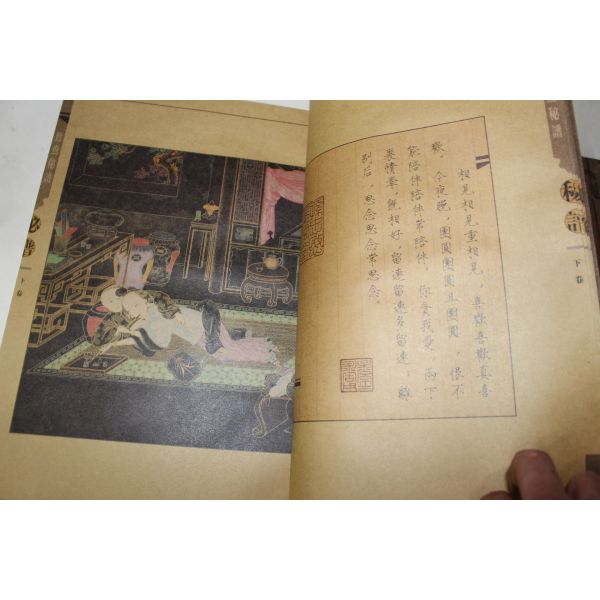 秘譜
下卷
相見相見重相見，喜歡喜歡真喜
歡。今夜晚，團圓團圓且團圓，恨不
能陪伴陪伴常陪伴。你愛我愛，兩下
裏情牽，既相好，留連留連多留連，離
别后，思念思念常思念。
秘譜
下卷